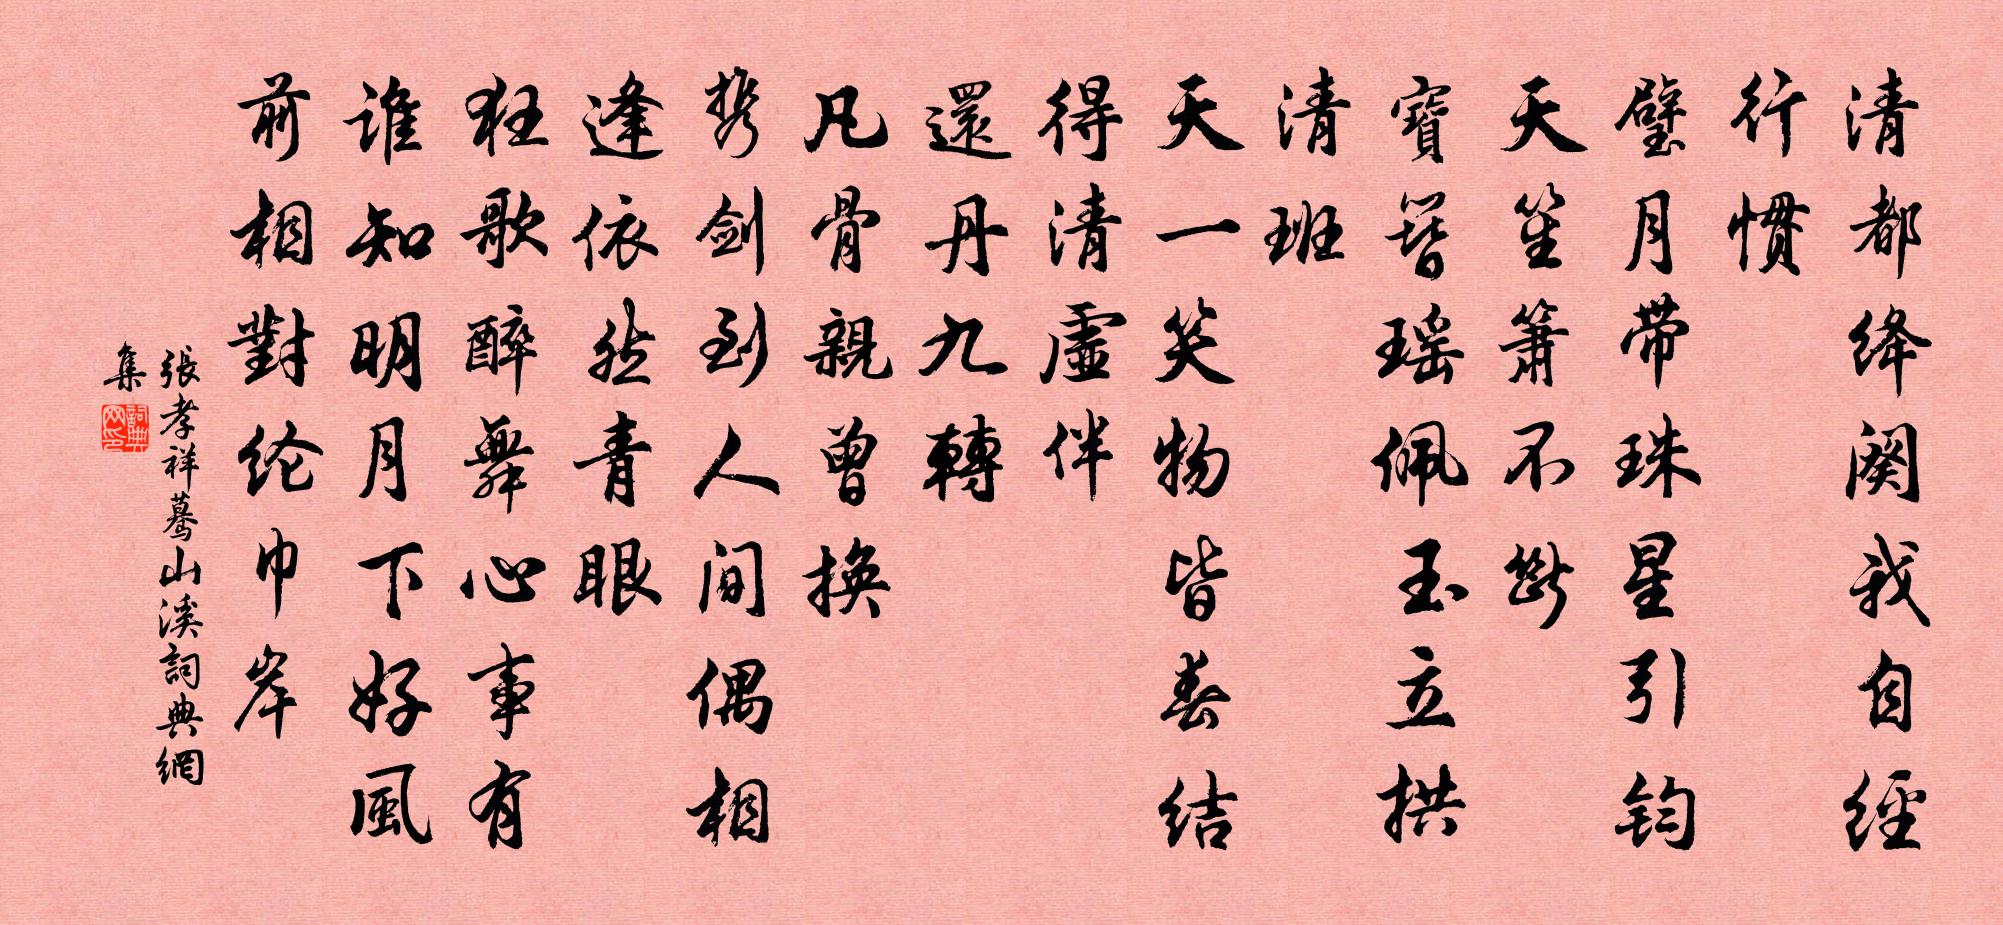 清都绛阙我自经
行惯
璧月带珠星引钧
天笙箫不断
寶簪瑶佩玉立拱
清班
天一笑物皆春结
得清虚伴
還丹九轉
凡骨親曾换
携剑到人间偶相
逢依然青眼
狂歌醉舞心事有
谁知明月下好風
前相對纶巾岸
張孝祥蓦山溪詞典網
集
詞典網印